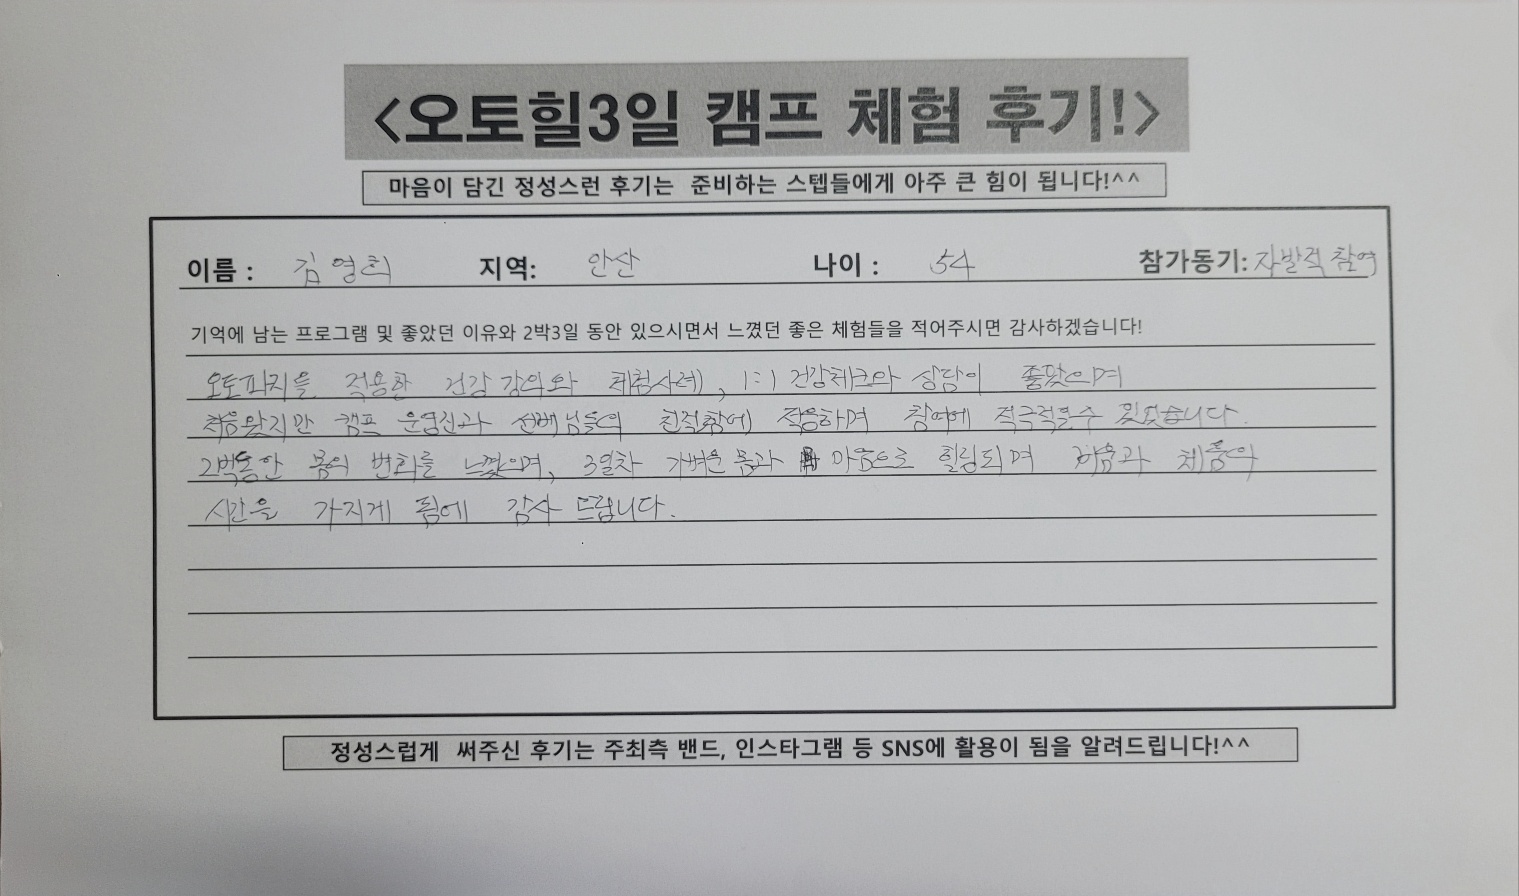 <오토힐3일 캠프 체험 후기!>
마음이 담긴 정성스런 후기는 준비하는 스텝들에게 아주 큰 힘이 됩니다!^^
이름 : 김영희 지역: 안산 나이 : 54 참가동기: 자발적 참여
기억에 남는 프로그램 및 좋았던 이유와 2박3일 동안 있으시면서 느꼈던 좋은 체험들을 적어주시면 감사하겠습니다!
오토파지를 적용한 건강 강의와 체험사례, 1:1 건강체크와 상담이 좋았으며
처음왔지만 캠프 운영진과 선배님들의 친절함에 적응하며 참여에 적극적일수 있었습니다.
2박동안 몸의 변화를 느꼈으며, 3일차 가벼운 몸과 마음으로 힐링되며 비움과 채움의
시간을 가지게 됨에 감사 드립니다.
정성스럽게 써주신 후기는 주최측 밴드, 인스타그램 등 SNS에 활용이 됨을 알려드립니다!^^